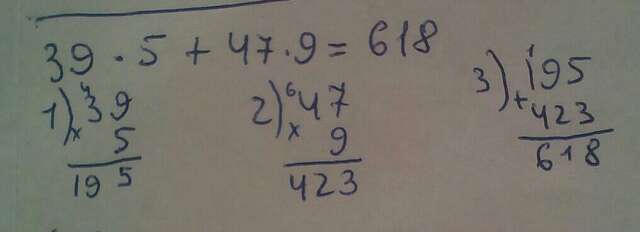 39 · 5 + 47 · 9 = 618
1) 4 39
x 5
195
2) 6 47
x 9
423
3) 1 195
+ 423
618